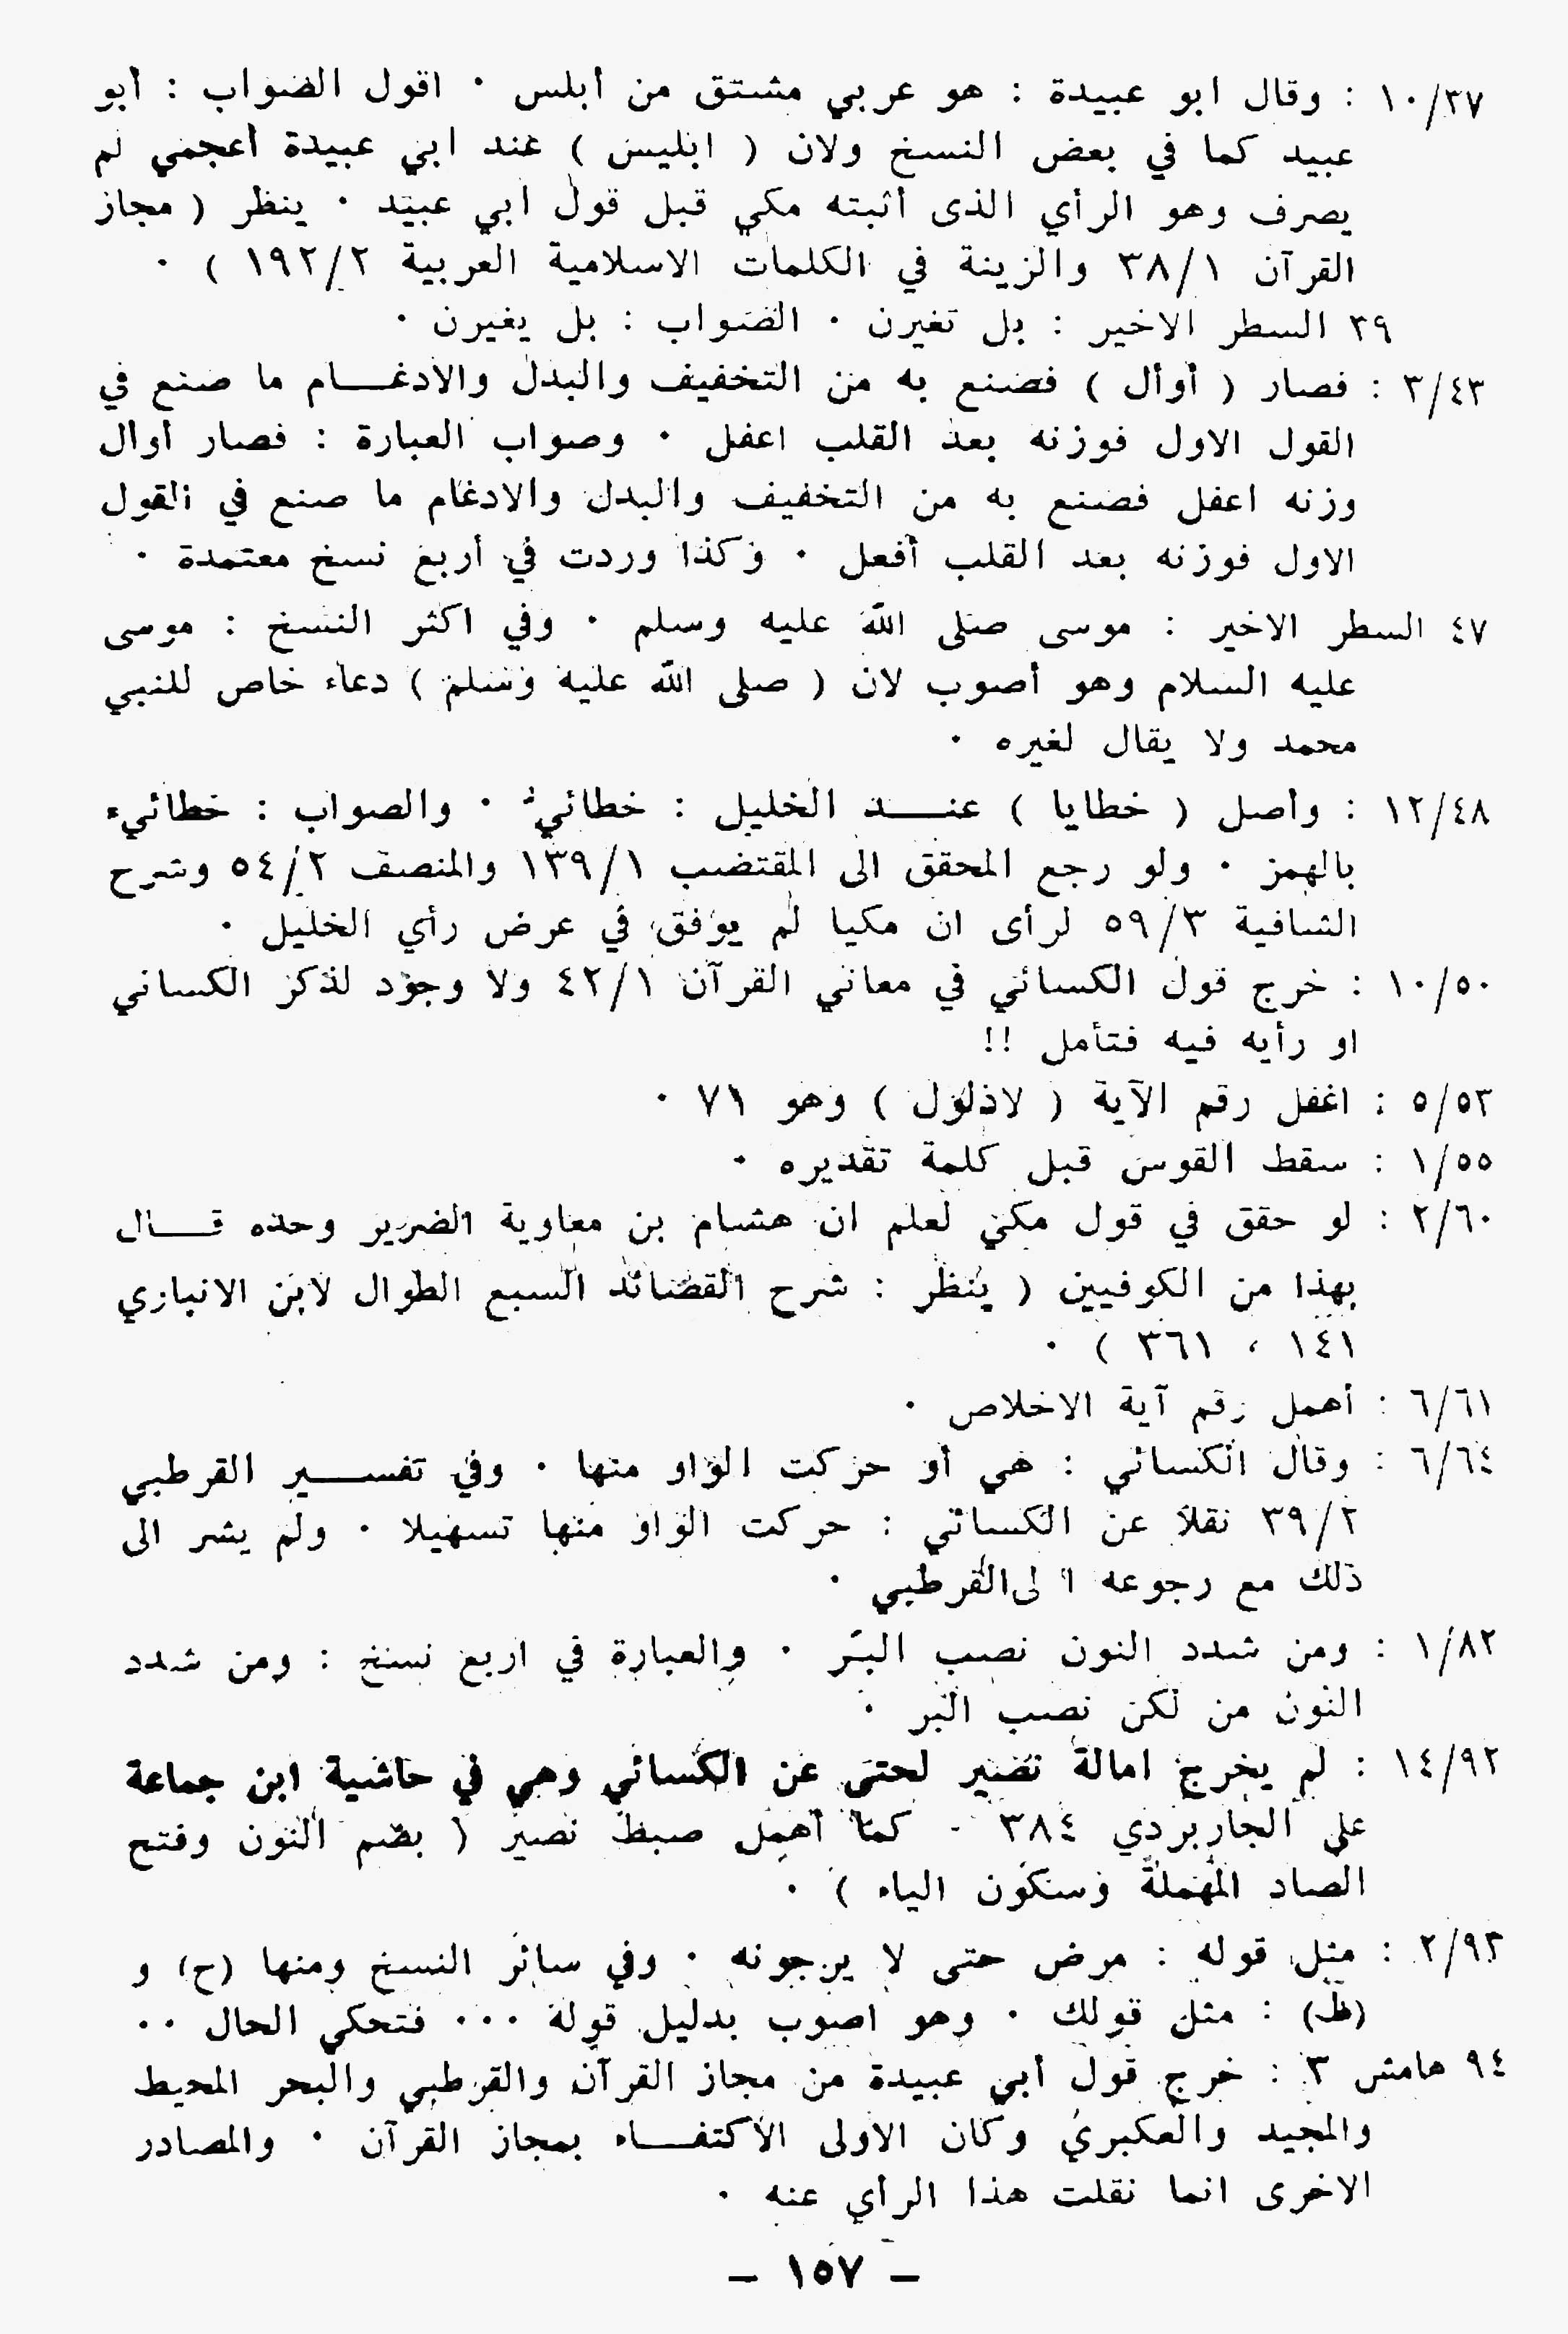 ١٠/٣٧ : وقال ابو عبيدة : هو عربي مشتق من أبلس ٠ اقول الصواب : أبو
عبيد كما في بعض النسخ ولان ( ابليس ) عند ابي عبيدة أعجمي لم
يصرف وهو الرأي الذى أثبته مكي قبل قول أبي عبيد ٠ ينظر ( مجاز
القرآن ٣٨/١ والزينة في الكلمات الاسلامية العربية ١٩٢/٢ ) ٠
٣٩ السطر الاخير : بل تغيرن ٠ الصواب : بل يغيرن ٠
٣/٤٣ : فصار ( أوأل ) فصنع به من التخفيف والبدل والادغـــام ما صنع في
القول الاول فوزنه بعد القلب اعفل ٠ وصواب العبارة : فصار أوأل
وزنه اعفل فصنع به من التخفيف والبدل والادغام ما صنع في القول
الاول فوزنه بعد القلب أفعل ٠ وكذا وردت في أربع نسخ معتمدة ٠
٤٧ السطر الاخير : موسى صلى الله عليه وسلم ٠ وفي اكثر النسخ : موسى
عليه السلام وهو أصوب لان ( صلى الله عليه وسلم ) دعاء خاص للنبي
محمد ولا يقال لغيره ٠
١٢/٤٨ : وأصل ( خطايا ) عنـــد الخليل : خطائيُ ٠ والصواب : خطائيء
بالهمز ٠ ولو رجع المحقق الى المقتضب ١٣٩/١ والمنصف ٥٤/٢ وشرح
الشافية ٥٩/٣ لرأى ان مكيا لم يوفق في عرض رأي الخليل ٠
١٠/٥٠ : خرج قول الكسائي في معاني القرآن ٤٢/١ ولا وجود لذكر الكسائي
او رأيه فيه فتأمل !!
٥/٥٣ : اغفل رقم الآية ( لاذلول ) وهو ٧١ ٠
١/٥٥ : سقط القوس قبل كلمة تقديره ٠
٢/٦٠ : لو حقق في قول مكي لعلم ان هشام بن معاوية الضرير وحده قـــال
بهذا من الكوفيين ( ينظر : شرح القصائد السبع الطوال لابن الانباري
١٤١ ، ٣٦١ ) ٠
٦/٦١ : أهمل رقم آية الاخلاص ٠
٦/٦٤ : وقال الكسائي : هي أو حركت الواو منها ٠ وفي تفســـير القرطبي
٣٩/٢ نقلا عن الكسائي : حركت الواو منها تسهيلا ٠ ولم يشر الى
ذلك مع رجوعه ا لى القرطبي ٠
١/٨٢ : ومن شدد النون نصب البر ٠ والعبارة في اربع نسخ : ومن شدد
النون من لكن نصب البر ٠
١٤/٩٢ : لم يخرج امالة نصير لحتى عن الكسائي وهي في حاشية ابن جماعة
على الجاربردي ٣٨٤ ٠ كما أهمل ضبط نصير ( بضم النون وفتح
الصاد المهملة وسكون الياء ) ٠
٢/٩٣ : مثل قوله : مرض حتى لا يرجونه ٠ وفي سائر النسخ ومنها (ح) و
(ظ) : مثل قولك ٠ وهو اصوب بدليل قوله ٠٠٠ فتحكي الحال ٠٠
٩٤ هامش ٣ : خرج قول أبي عبيدة من مجاز القرآن والقرطبي والبحر المحيط
والمجيد والعكبري وكان الاولى الاكتفـــاء بمجاز القرآن ٠ والمصادر
الاخرى انما نقلت هذا الرأي عنه ٠
– ١٥٧ –